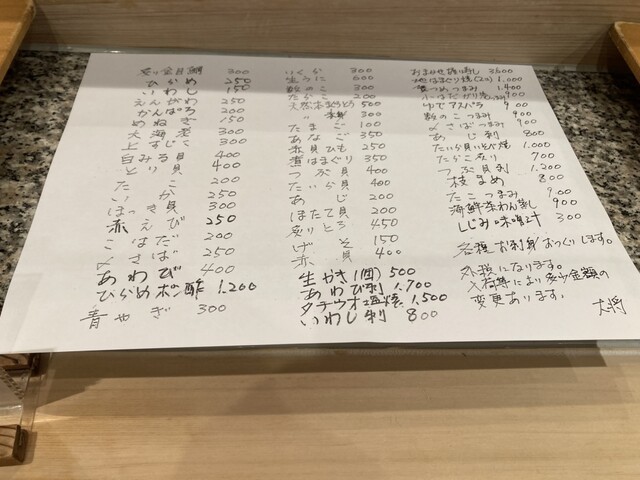 炙り金目鯛 300
ひらめ 250
いわし 150
えんがわ 250
かんぱち 200
めねぎ 150
大海老 300
上すじこ 300
白みる貝 400
とり貝 400
たこ 200
いか 250
ほっき貝 300
赤えび 250
こはだ 200
〆さば 250
あわび 400
ひらめポン酢 1.200
青やぎ 300
いくら 300
生うに 600
数のこ 300
たらこ 200
天然本まぐろとろ 500
〃 赤身 300
たまご 100
あなご 350
赤貝ひも 250
煮はまぐり 350
つぶ貝 400
たいら貝 400
あじ 200
ほたて貝 200
炙りとろ 450
げそ 150
赤貝 400
生かき(1個) 500
あわび刺 1.700
タチウオ塩焼 1.500
いわし刺 800
おまかせ握り寿し 3.600
地はまぐり焼(2コ) 1.000
つめつまみ 1.400
こはだガリ巻 900
ゆでアスパラ 900
数のこつまみ 900
〆さばつまみ 900
あじ刺 800
たいら貝いそべ焼 1.000
たらこ炙り 700
つぶ貝刺 1.200
枝まめ 800
たこつまみ 900
海鮮茶わん蒸し 900
しじみ味噌汁 300
各種お刺身おつくりします。
外税になります。
入荷等により多少金額の
変更あります。
大将